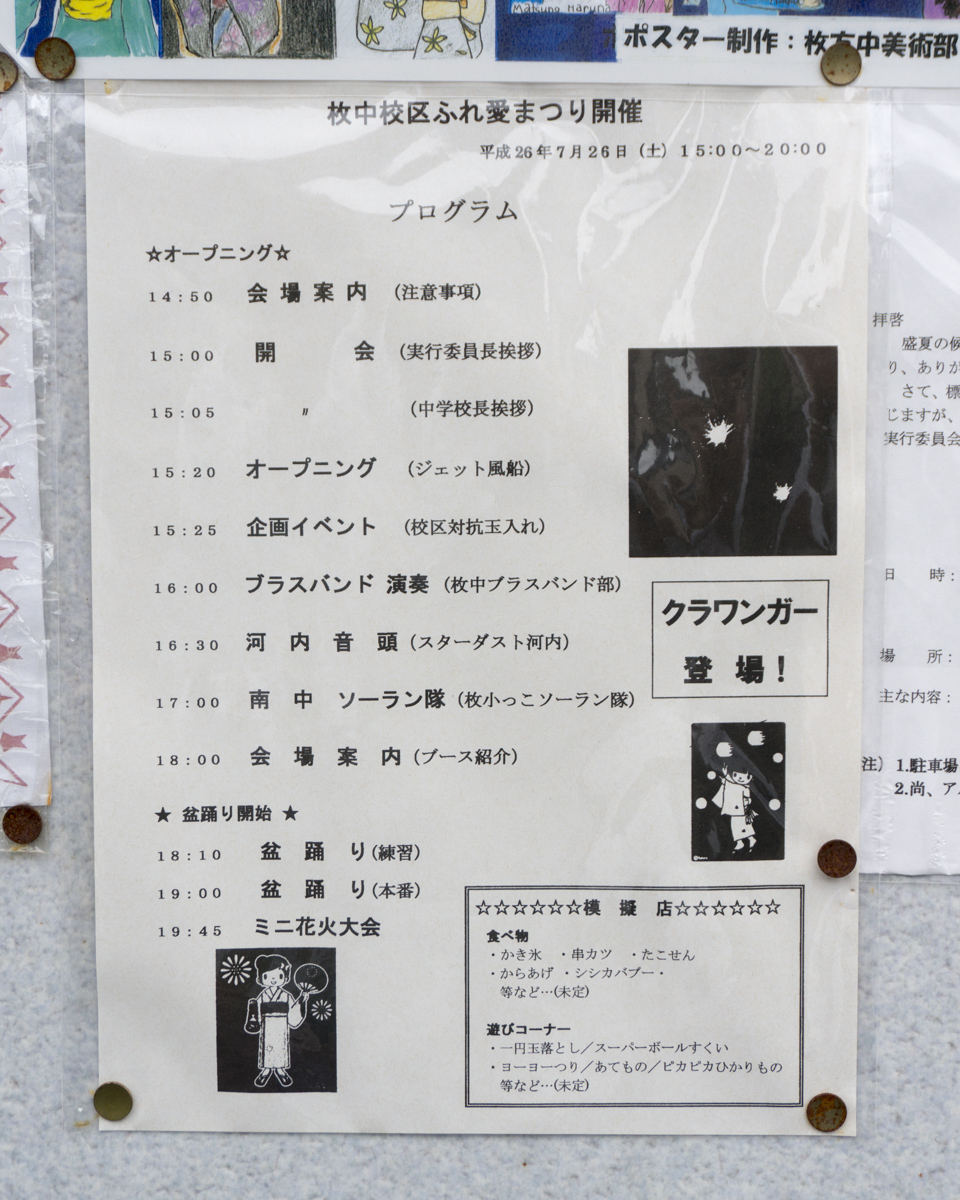 Makuno Haruna
ポスター制作：枚方中美術部
枚中校区ふれ愛まつり開催
平成26年7月26日（土）15:00～20:00
プログラム
☆オープニング☆
14:50 会場案内 （注意事項）
15:00 開会 （実行委員長挨拶）
15:05 〃 （中学校長挨拶）
15:20 オープニング （ジェット風船）
15:25 企画イベント （校区対抗玉入れ）
16:00 ブラスバンド 演奏 （枚中ブラスバンド部）
16:30 河内音頭 （スターダスト河内）
17:00 南中ソーラン隊 （枚小っこソーラン隊）
18:00 会場案内 （ブース紹介）
クラワンガー
登場！
★ 盆踊り開始 ★
18:10 盆踊り（練習）
19:00 盆踊り（本番）
19:45 ミニ花火大会
☆☆☆☆☆☆模擬店☆☆☆☆☆☆
食べ物
・かき氷 ・串カツ ・たこせん
・からあげ ・シシカバブー・
等など…(未定)
遊びコーナー
・一円玉落とし／スーパーボールすくい
・ヨーヨーつり／あてもの／ピカピカひかりもの
等など…(未定)
拝啓
盛夏の候
り、ありが
さて、標
じますが、
実行委員会
日 時：
場 所：
主な内容：
注） 1.駐車場
2.尚、ア